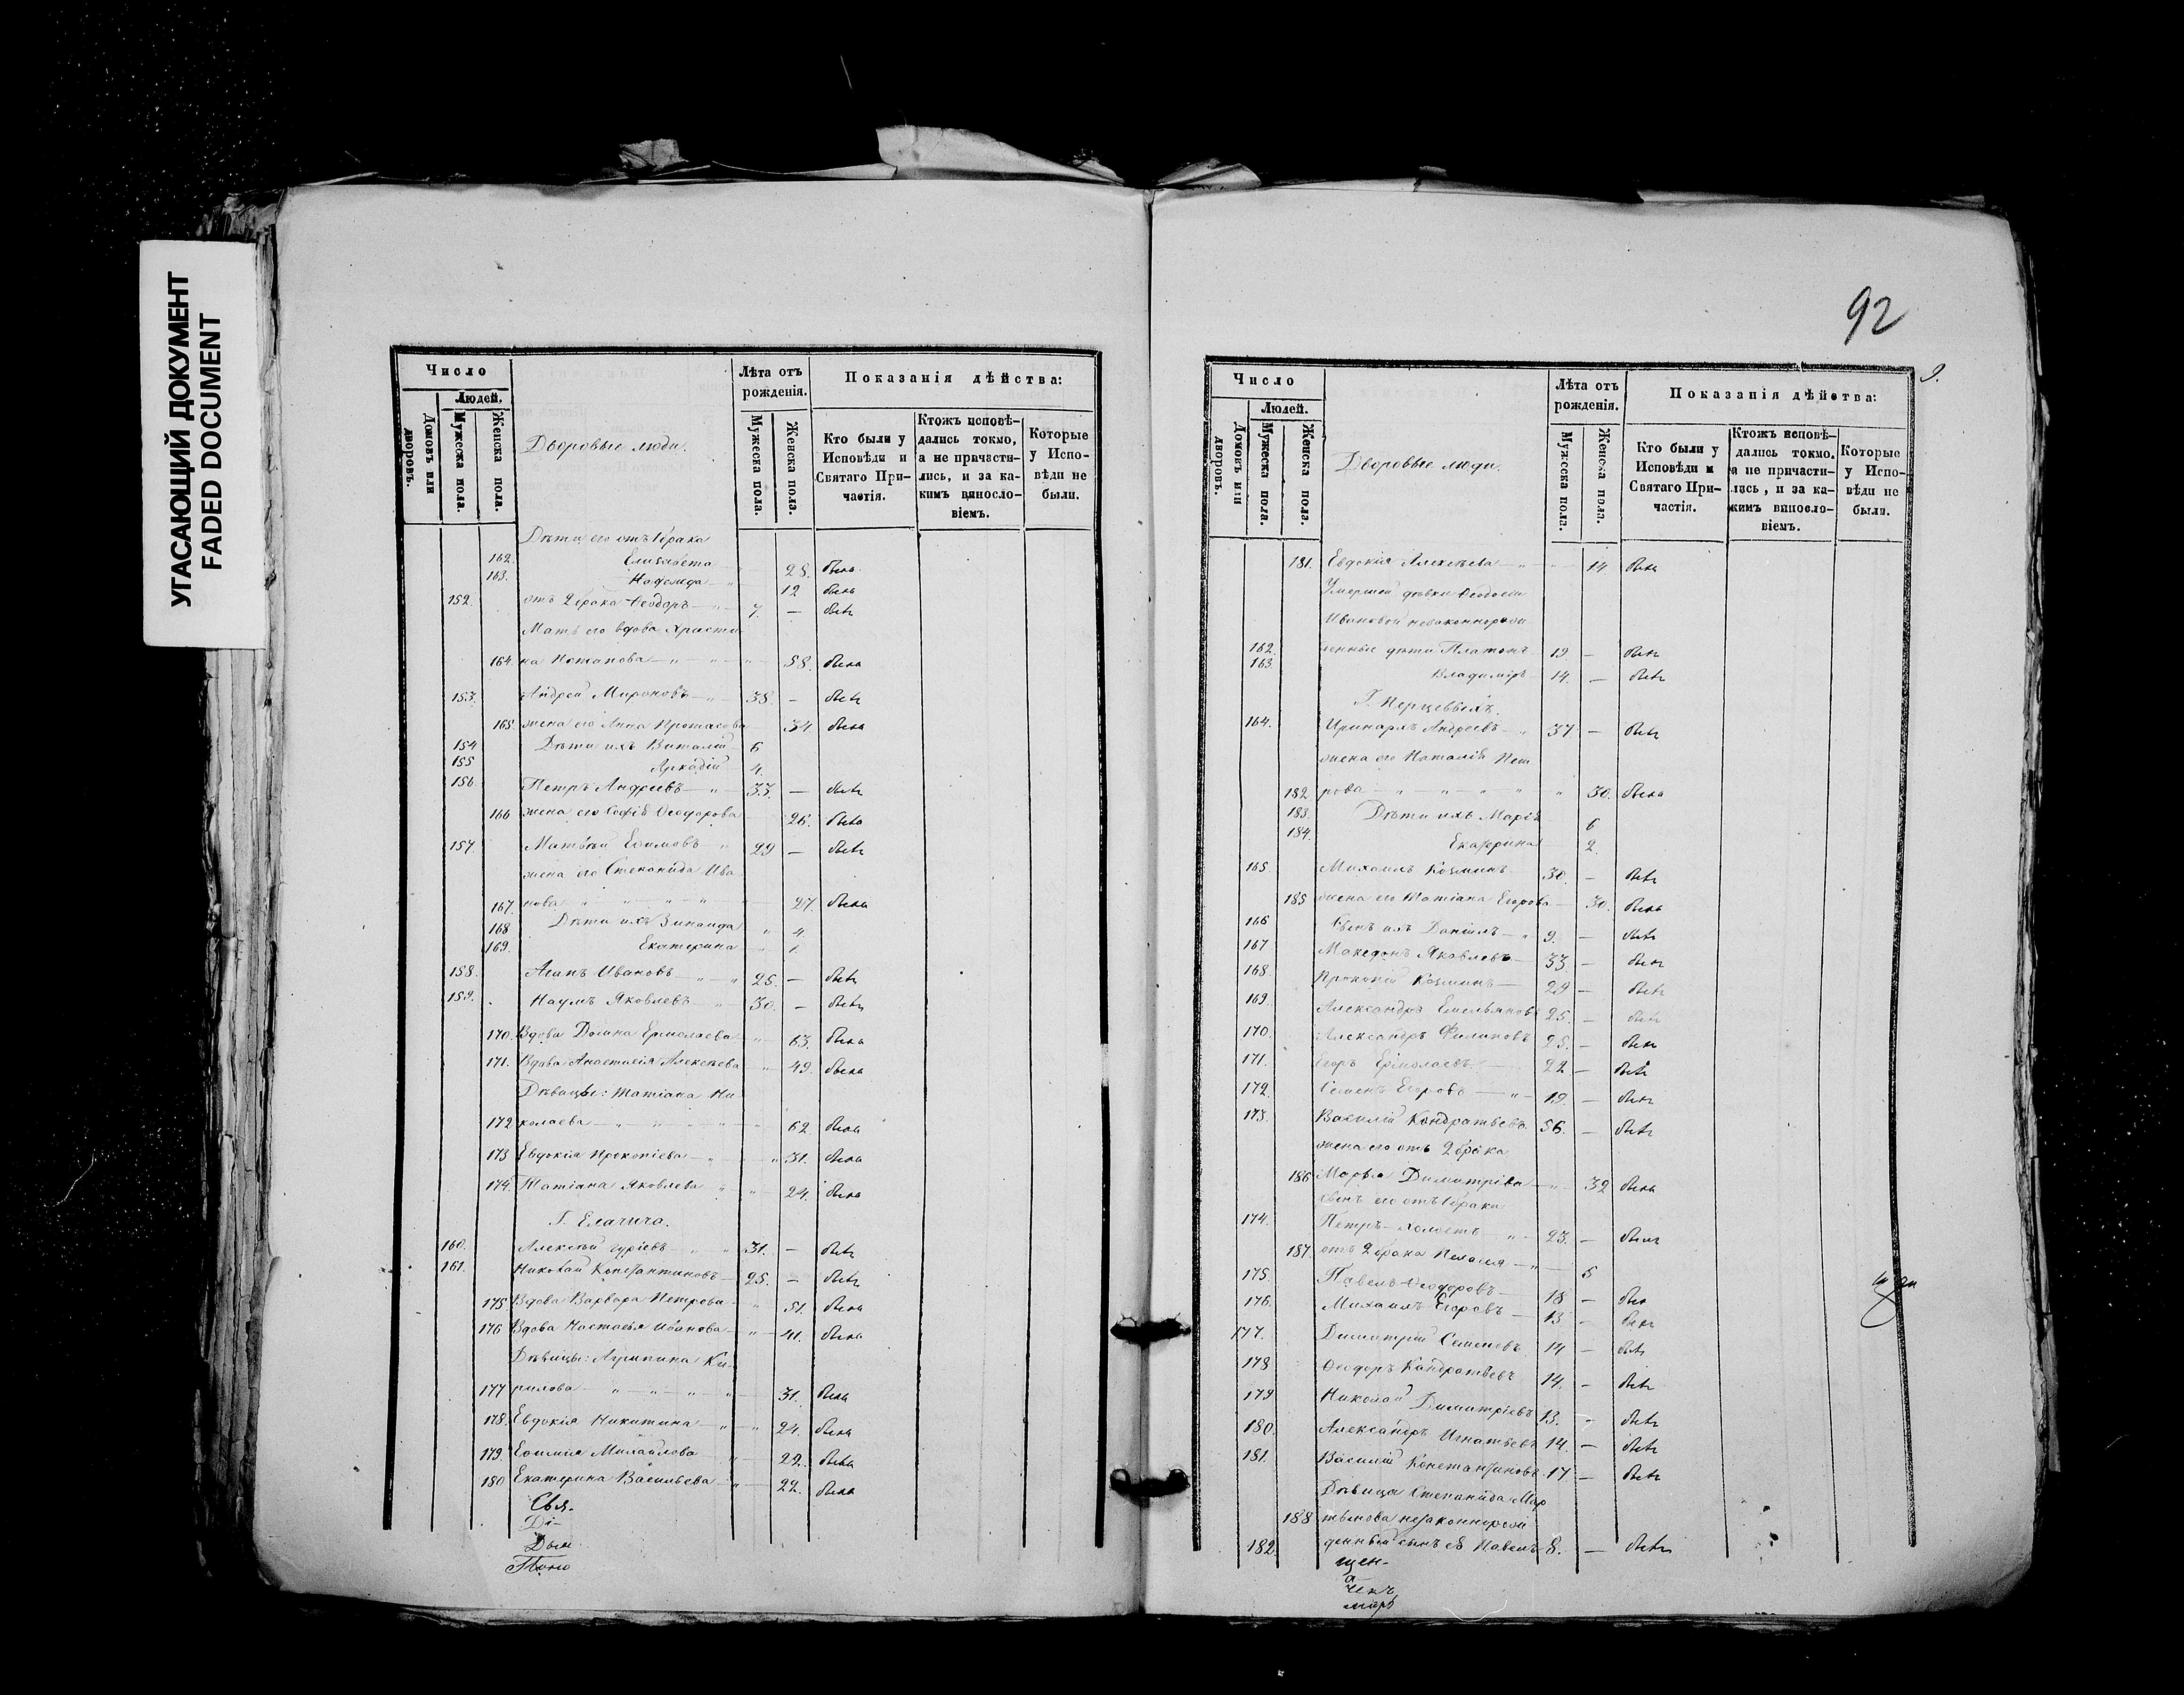 УГАСАЮЩИЙ ДОКУМЕНТ
FADED DOCUMENT
Число
Людей.
Домовъ или дворовъ.
Мужеска пола.
Женска пола.
Дворовые люди.
Лѣта отъ рожденія.
Мужеска пола.
Женска пола.
Показанія дѣйства:
Кто были у Исповѣди и Святаго Причастія.
Ктожъ исповѣдались токмо, а не причастились, и за какимъ винословіемъ.
Которые у Исповѣди не были.
Дѣти его отъ 1 брака
162. Елисавета 28. была
163. Надежда 12 была
152. отъ 2 брака Ѳеодоръ 7. — былъ
Мать его вдова Христи-
164. на Потапова 58. была
153. Андрей Мироновъ 38. — былъ
165. жена его Анна Протасова 34. была
154 Дѣти ихъ Виталій 6
155 Аркадій 4.
156. Петръ Андреевъ 33. — былъ
166 жена его Софія Ѳеодорова 26. была
157. Матѳей Ефимовъ 29 — былъ
жена его Степанида Ива-
167. нова 27. была
168 Дѣти ихъ Зинаида 4.
169. Екатерина 1.
158. Агапъ Ивановъ 25. — былъ
159. Наумъ Яковлевъ 30. — былъ
170. Вдова Домна Ермолаева 63. была
171. Вдова Анастасія Алексѣева 49. была
Дѣвицы: Татіана Ни-
172 колаева 62 была
173 Евдокія Прокопіева 31. была
174. Татіана Яковлева 24. была
Г. Елагина.
160. Алексѣй Гуріевъ 31. — былъ
161. Николай Константиновъ 25. — былъ
175 Вдова Варвара Петрова 51. была
176 Вдова Настасья Иванова 41. была
Дѣвицы: Агрипина Ки-
177 рилова 31. была
178. Евдокія Никитина 24. была
179. Евфимія Михайлова 22. была
180 Екатерина Васильева 22. была
Свя-
Дi-
Дья
92
9.
Число
Людей.
Домовъ или дворовъ.
Мужеска пола.
Женска пола.
Дворовые люди.
Лѣта отъ рожденія.
Мужеска пола.
Женска пола.
Показанія дѣйства:
Кто были у Исповѣди и Святаго Причастія.
Ктожъ исповѣдались токмо, а не причастились, и за какимъ винословіемъ.
Которые у Исповѣди не были.
181. Евдокія Алексѣева 14 была
Умершей дѣвки Ѳеодосіи
Ивановой незаконнорож-
162. денные дѣти Платонъ 19. — былъ
163. Владиміръ 14. — былъ
Г. Перцевыхъ.
164. Иринархъ Андреевъ 37 — былъ
жена его Наталія Пет-
182. рова 30. была
183. Дѣти ихъ Марія 6
184. Екатерина 2.
165. Михаилъ Козминъ 30. — былъ
185 жена его Татіана Егорова 30. была
166 Сынъ ихъ Даніилъ 9. — былъ
167. Македонъ Яковлевъ 33 — былъ
168. Прокопій Козминъ 29 — былъ
169. Александръ Емельяновъ 25. — былъ
170. Александръ Филиповъ 25. — былъ
171. Егоръ Ермолаевъ 22 — былъ
172. Семенъ Егоровъ 19. — былъ
173. Василій Кондратьевъ 56. — былъ
жена его отъ 2 брака
186 Марья Димитріева 32 была
сынъ его отъ 1 брака
174. Петръ — холостъ 23. — былъ
187. отъ 2 брака Пелагія 5
175. Павелъ Ѳеодоровъ 18 — былъ
176. Михаилъ Егоровъ 13 — былъ
177. Димитрій Семеновъ 14 — былъ
178 Ѳеодоръ Кондратьевъ 14. — былъ
179 Николай Димитріевъ 13. — былъ
180. Александръ Игнатьевъ 14. — былъ
181. Василій Константиновъ 17 — былъ
Дѣвица Степанида Мар-
188 тынова незаконнорож-
182. денный сынъ ея Павелъ 8. — былъ
щен-
а-
чекъ